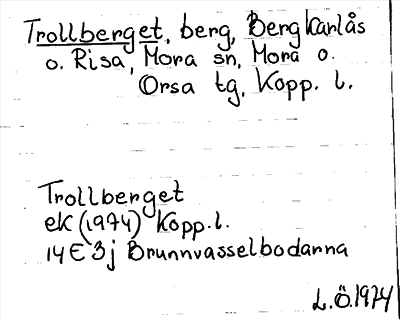 Trollberget, berg, Bergkarlås
o. Risa, Mora sn, Mora o.
Orsa tg, Kopp. l.
Trollberget
ek (1974) Kopp. l.
14E 3j Brunnvasselbodarna
L.Ö. 1974